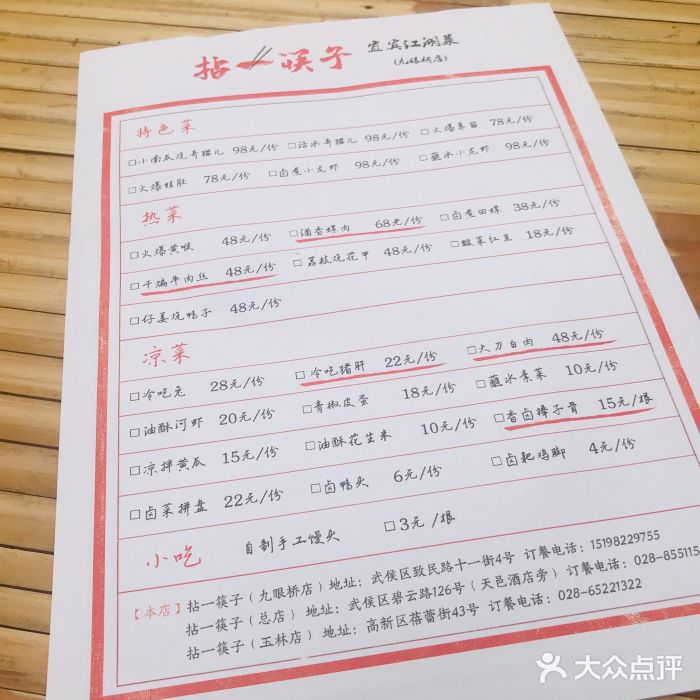 拈一筷子 宜宾江湖菜
(九眼桥店)
特色菜
□小南瓜烧哥猫儿 98元/份 □活水哥猫儿 98元/份 □火爆鼻筋 78元/份
□火爆蛙肚 78元/份 □卤煮小龙虾 98元/份 □蘸水小龙虾 98元/份
热菜
□火爆黄喉 48元/份 □酒香螺肉 68元/份 □卤煮田螺 38元/份
□干煸牛肉丝 48元/份 □荔枝烧花甲 48元/份 □酸菜红豆 18元/份
□仔姜烧鸭子 48元/份
凉菜
□冷吃兔 28元/份 □冷吃猪肝 22元/份 □大刀白肉 48元/份
□油酥河虾 20元/份 □青椒皮蛋 18元/份 □蘸水素菜 10元/份
□凉拌黄瓜 15元/份 □油酥花生米 10元/份 □香卤棒子骨 15元/根
□卤菜拼盘 22元/份 □卤鸭头 6元/份 □卤耙鸡脚 4元/份
小吃 自制手工馒头 □3元/根
【本店】拈一筷子（九眼桥店）地址：武侯区致民路十一街4号 订餐电话：15198229755
拈一筷子（总店）地址：武侯区碧云路126号（天邑酒店旁）订餐电话：028-855115
拈一筷子（玉林店）地址：高新区蓓蕾街43号 订餐电话：028-65221322
大众点评